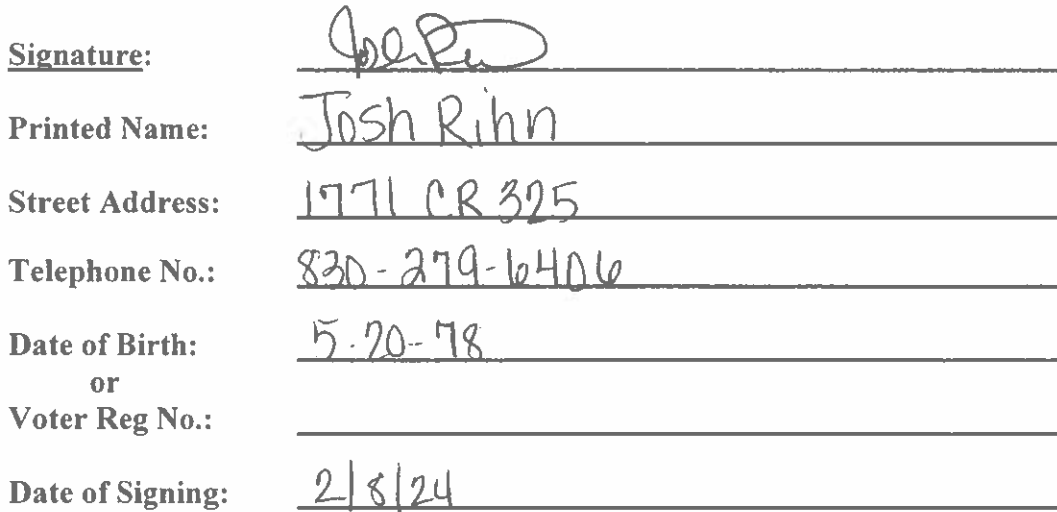 Signature: Josh Rihn
Printed Name: Josh Rihn
Street Address: 1771 CR 325
Telephone No.: 830-279-6406
Date of Birth: 5-20-78
or
Voter Reg No.:
Date of Signing: 2/8/24